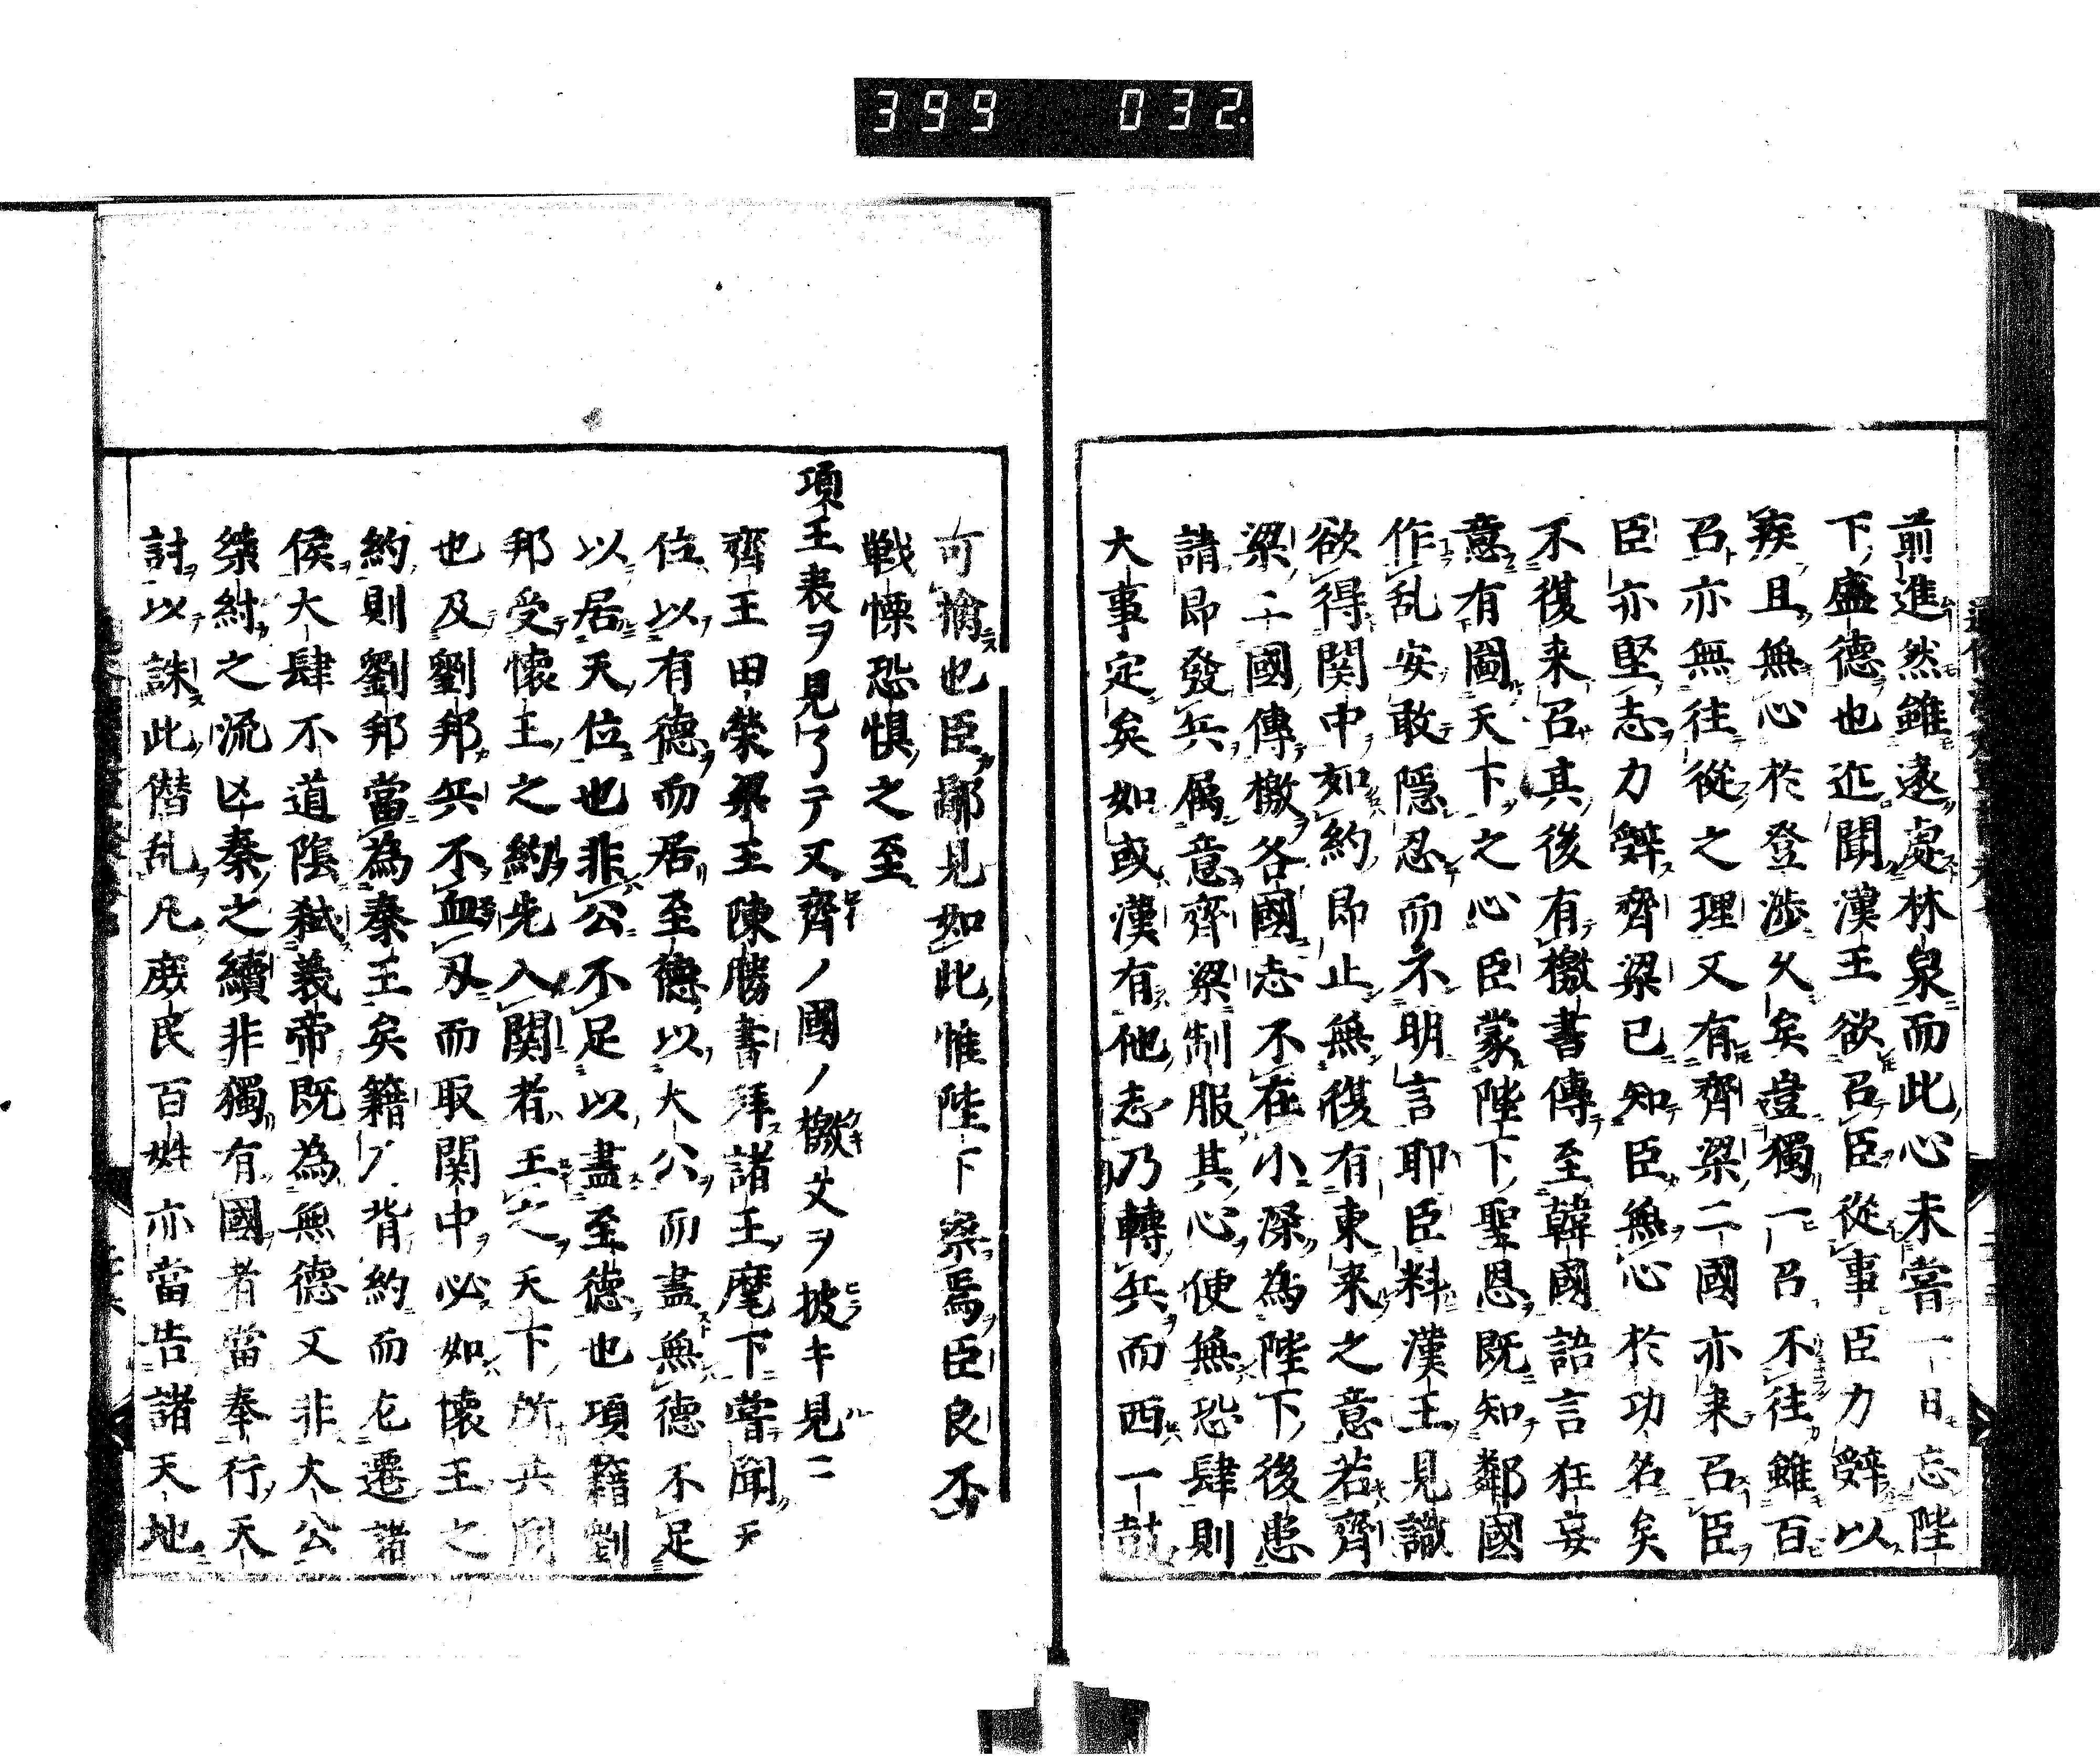 399 032
前進然雖遠處林泉而此心未嘗一日忘陛
下盛德也近聞漢王欲召臣從事臣力辤以
疾且無心於登渉久矣豈獨一召不往雖百
召亦無往從之理又有齊梁二國亦来召臣
臣亦堅志力辤齊梁已知臣無心於功名矣
不復来召其後有檄書傳至韓國語言狂妄
意有圖天下之心臣蒙陛下聖恩既知鄰國
作乱安敢隠忍而不明言耶臣料漢王見識
欲得関中如約即止無復有東来之意若齊
梁二國傳檄各國志不在小深為陛下後患
請即發兵属意齊梁制服其心便無恐肆則
大事定矣如或漢有他志乃轉兵而西一鼓
可擒也臣鄙見如此惟陛下察焉臣良不
戦慄恐惧之至
項王表ヲ見了テ又齊ノ國ノ檄文ヲ披キ見ニ
齊王田榮梁王陳勝書拜諸王麾下嘗聞天
位以有德而居至德以大公而盡無德不足
以居天位也非公不足以盡至德也項籍劉
邦受懐王之約先入関者王之天下所共聞
也及劉邦兵不血刄而取関中必如懐王之
約則劉邦當為秦王矣籍乃背約而左遷諸
侯大肆不道隂弑義帝既為無德又非大公
桀紂之流凶秦之續非獨有國者當奉行天
討以誅此僣乱凡庻民百姓亦當告諸天地